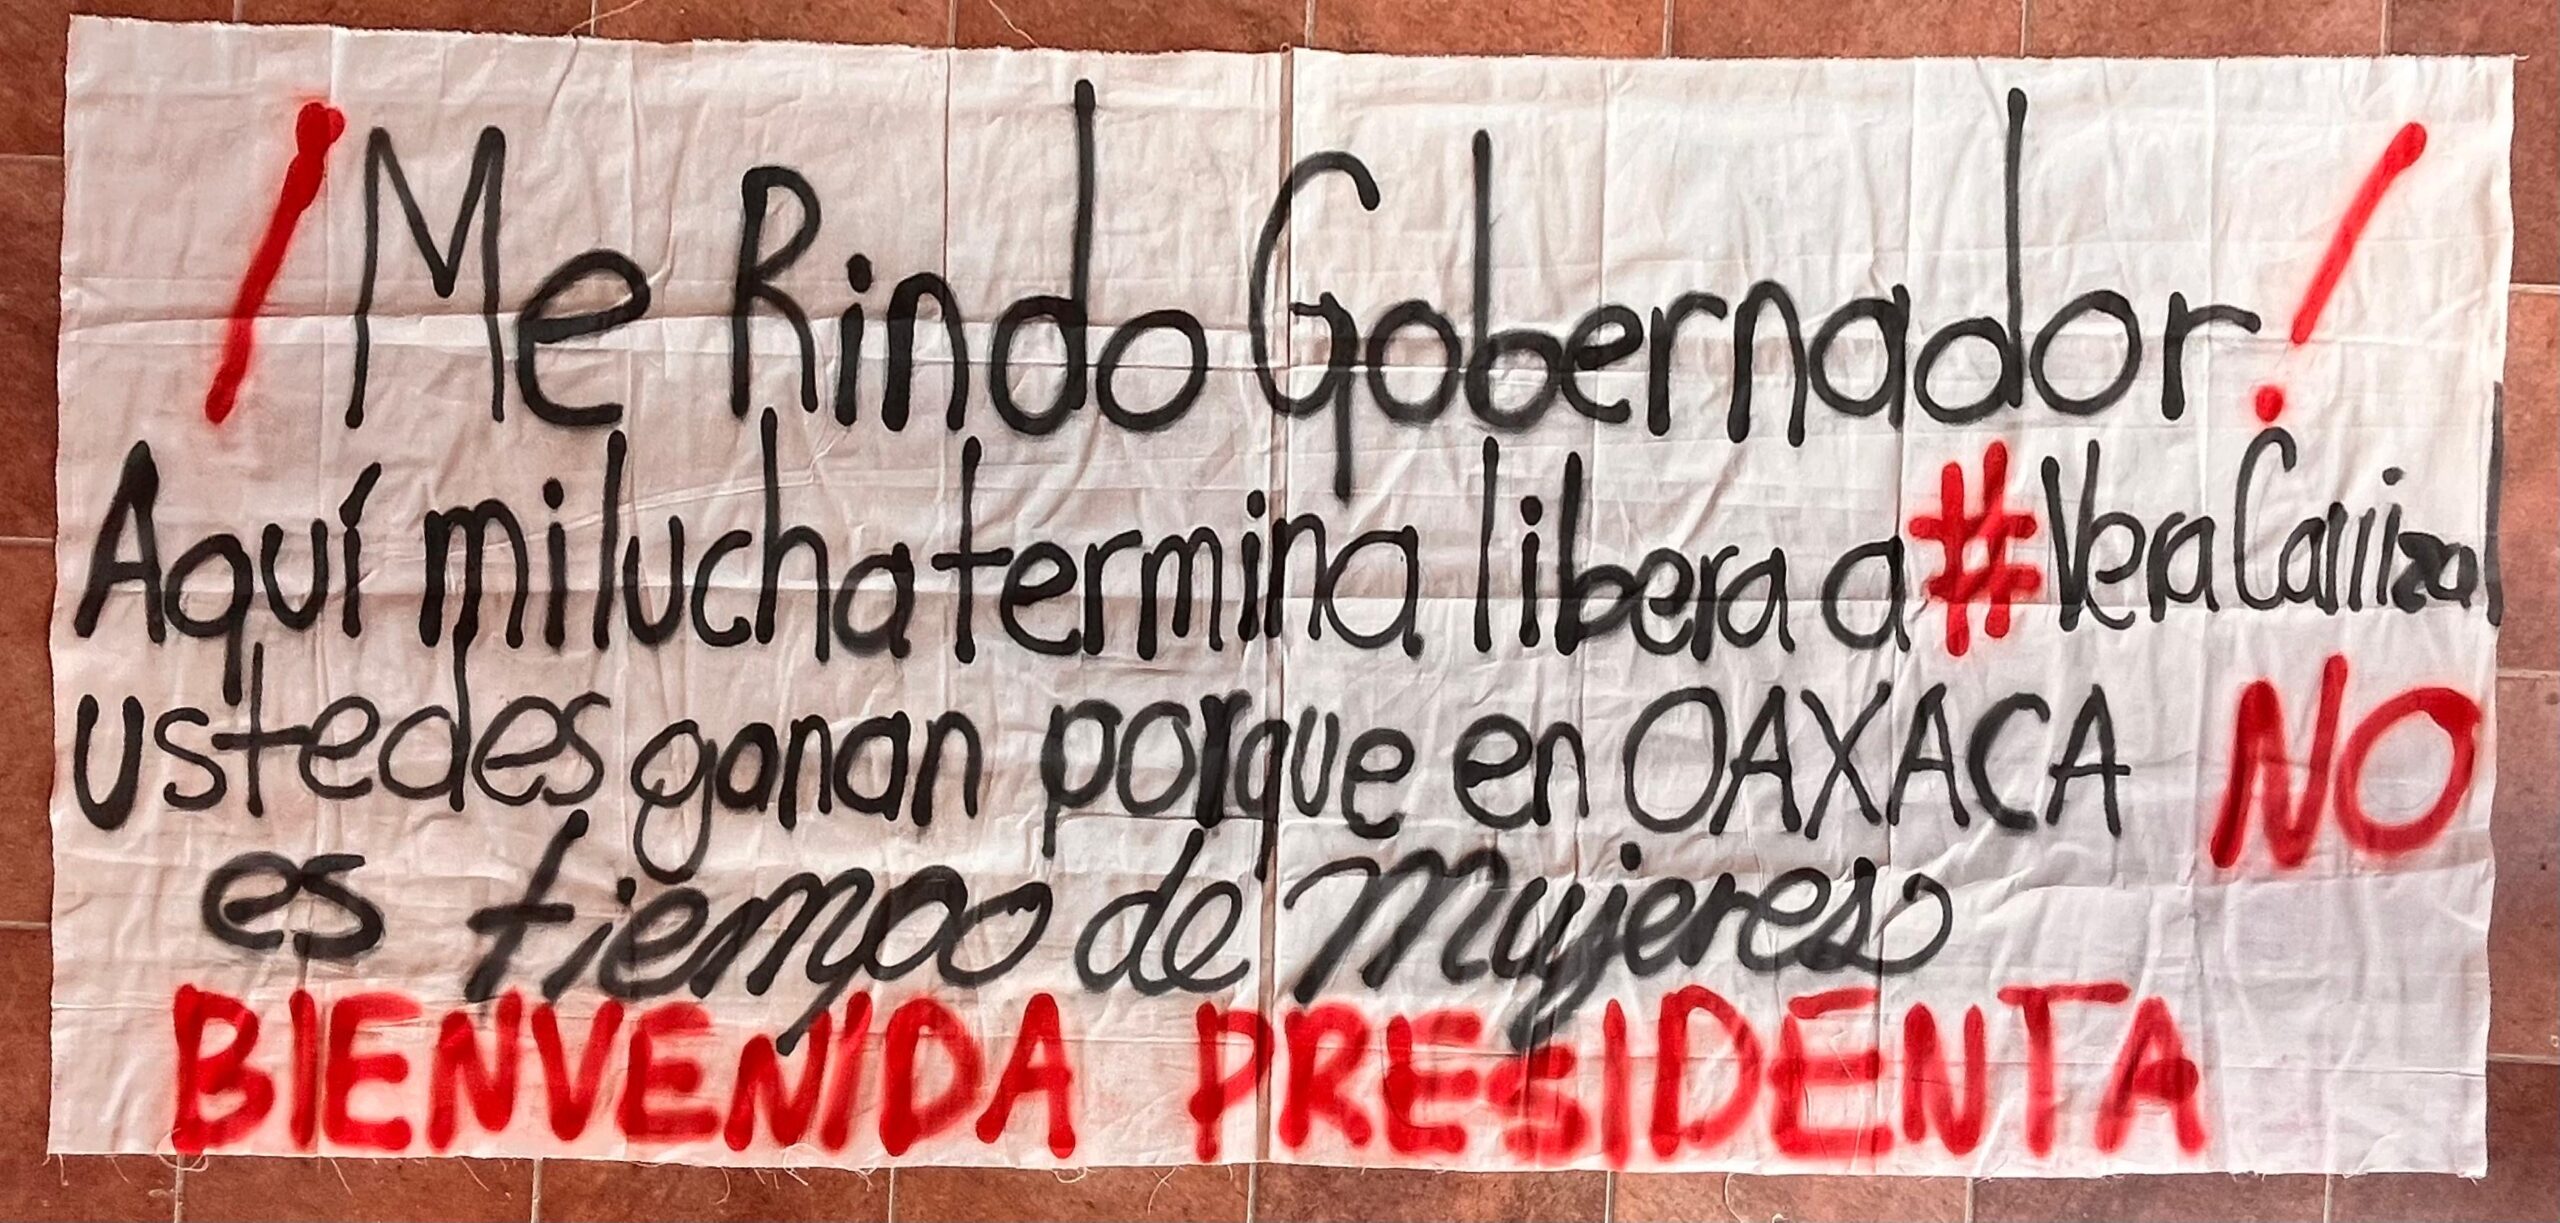 ¡Me Rindo Gobernador!
Aquí mi lucha termina libera a #VeraCarrizal
ustedes ganan porque en OAXACA NO
es tiempo de Mujeres
BIENVENIDA PRESIDENTA